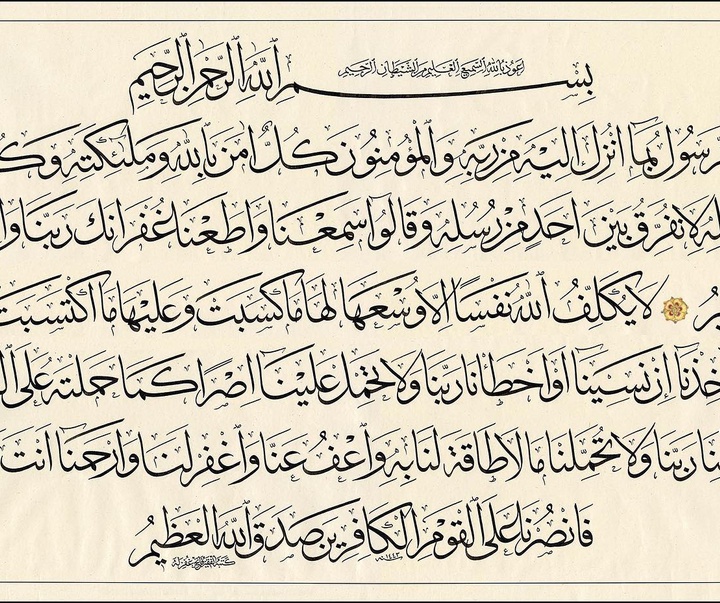 اعوذ بالله السميع العليم من الشيطان الرجيم
بِسْمِ اللّٰهِ الرَّحْمٰنِ الرَّحِيمِ
الرَّسُولُ بِمَا اُنْزِلَ اِلَيْهِ مِنْ رَبِّهِ وَالْمُؤْمِنُونَ كُلٌّ اٰمَنَ بِاللّٰهِ وَمَلٰئِكَتِهِ وَكُ
لِهِ لَا نُفَرِّقُ بَيْنَ اَحَدٍ مِنْ رُسُلِهِ وَقَالُوا سَمِعْنَا وَاَطَعْنَا غُفْرَانَكَ رَبَّنَا وَا
يرُ لَا يُكَلِّفُ اللّٰهُ نَفْسًا اِلَّا وُسْعَهَا لَهَا مَا كَسَبَتْ وَعَلَيْهَا مَا اكْتَسَبَتْ
اخِذْنَا اِنْ نَسِينَا اَوْ اَخْطَأْنَا رَبَّنَا وَلَا تَحْمِلْ عَلَيْنَا اِصْرًا كَمَا حَمَلْتَهُ عَلَى ال
نَا رَبَّنَا وَلَا تُحَمِّلْنَا مَا لَا طَاقَةَ لَنَا بِهِ وَاعْفُ عَنَّا وَاغْفِرْ لَنَا وَارْحَمْنَا اَنْتَ
فَانْصُرْنَا عَلَى الْقَوْمِ الْكَافِرِينَ صَدَقَ اللّٰهُ الْعَظِيمُ